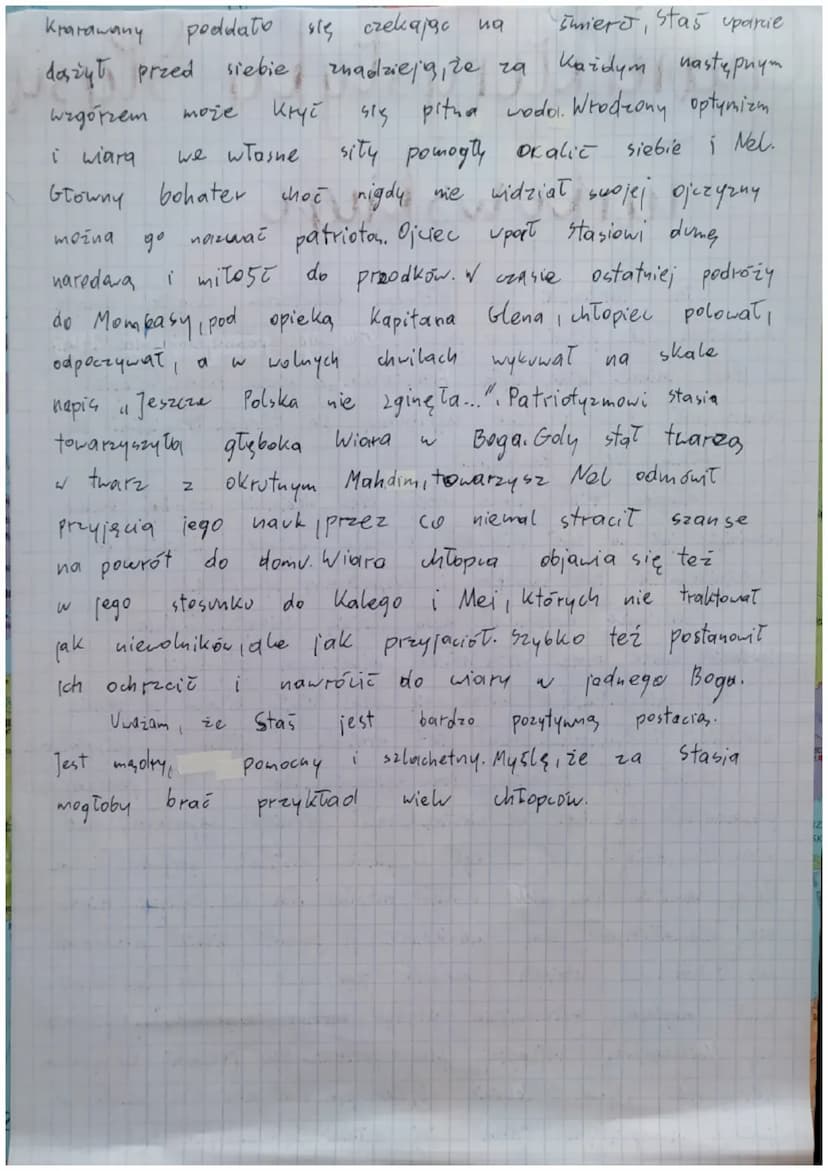 Krarawany poddało się czekając na śmierć, Staś uparcie
dążył przed siebie znadzieją, że za każdym następnym
wzgórzem może kryć się pitna woda. Wrodzony optymizm
i wiara we własne siły pomogły okalić siebie i Nel.
Główny bohater choć nigdy nie widział swojej ojczyzny
można go nazwać patriotą. Ojciec vpoił Stasiowi dumę
narodową i miłość do przodków. W czasie ostatniej podróży
do Mombasy, pod opieką Kapitana Glena, chłopiec polował,
odpoczywał, a w wolnych chwilach wykuwał na skale
napis „Jeszcze Polska nie zginęła...". Patriotyzmowi Stasia
towarzyszyła głęboka Wiara w Boga. Gdy stał twarzą
w twarz z okrutnym Mahdim, towarzysz Nel odmówił
przyjęcia jego nauk, przez co niemal stracił szanse
na powrót do domu. Wiara chłopca objawia się też
w jego stosunku do Kalego i Mei, których nie traktował
jak niewolników, ale jak przyjaciół. Szybko też postanowił
ich ochrzcić i nawrócić do wiary w jednego Boga.
Uważam, że Staś jest bardzo pozytywną postacią.
Jest mądry, pomocny i szlachetny. Myślę, że za Stasia
mogłoby brać przykład wielu chłopców.